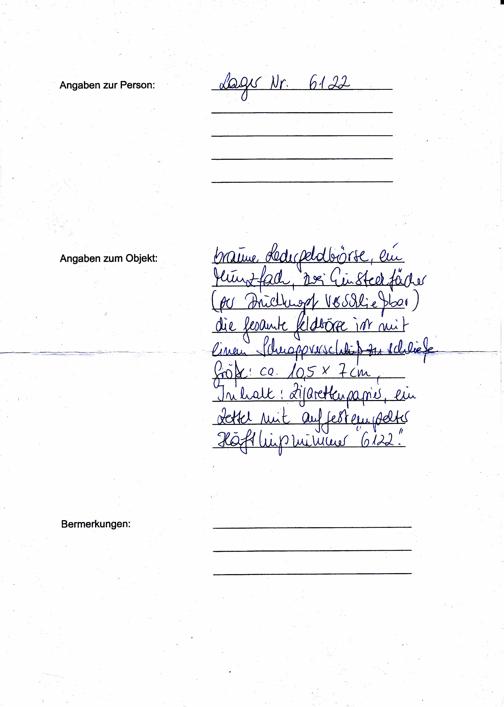 Angaben zur Person:
Lager Nr. 6122
Angaben zum Objekt:
braune Ledergeldbörse, ein
Münzfach, zwei Einsteckfächer
(per Druckknopf verschließbar)
die gesamte Geldbörse ist mit
einen Schnappverschluß zu schließe
Größe: ca. 10,5 x 7cm,
Inhalt: Zigarettenpapier, ein
Zettel mit aufgestempelter
Häftlingsnummer "6122".
Bermerkungen: